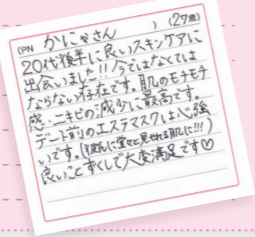 (PN かにゃさん ) (27歳)
20代後半に良いスキンケアに
出会いました!!今ではなくては
ならない存在です。肌のモチモチ
感・ニキビの減少に最高です。
デート前のエステマスクは心強
いです。(彼氏に堂々と見せれる肌に!!!)
良いことずくしで大変満足です♡